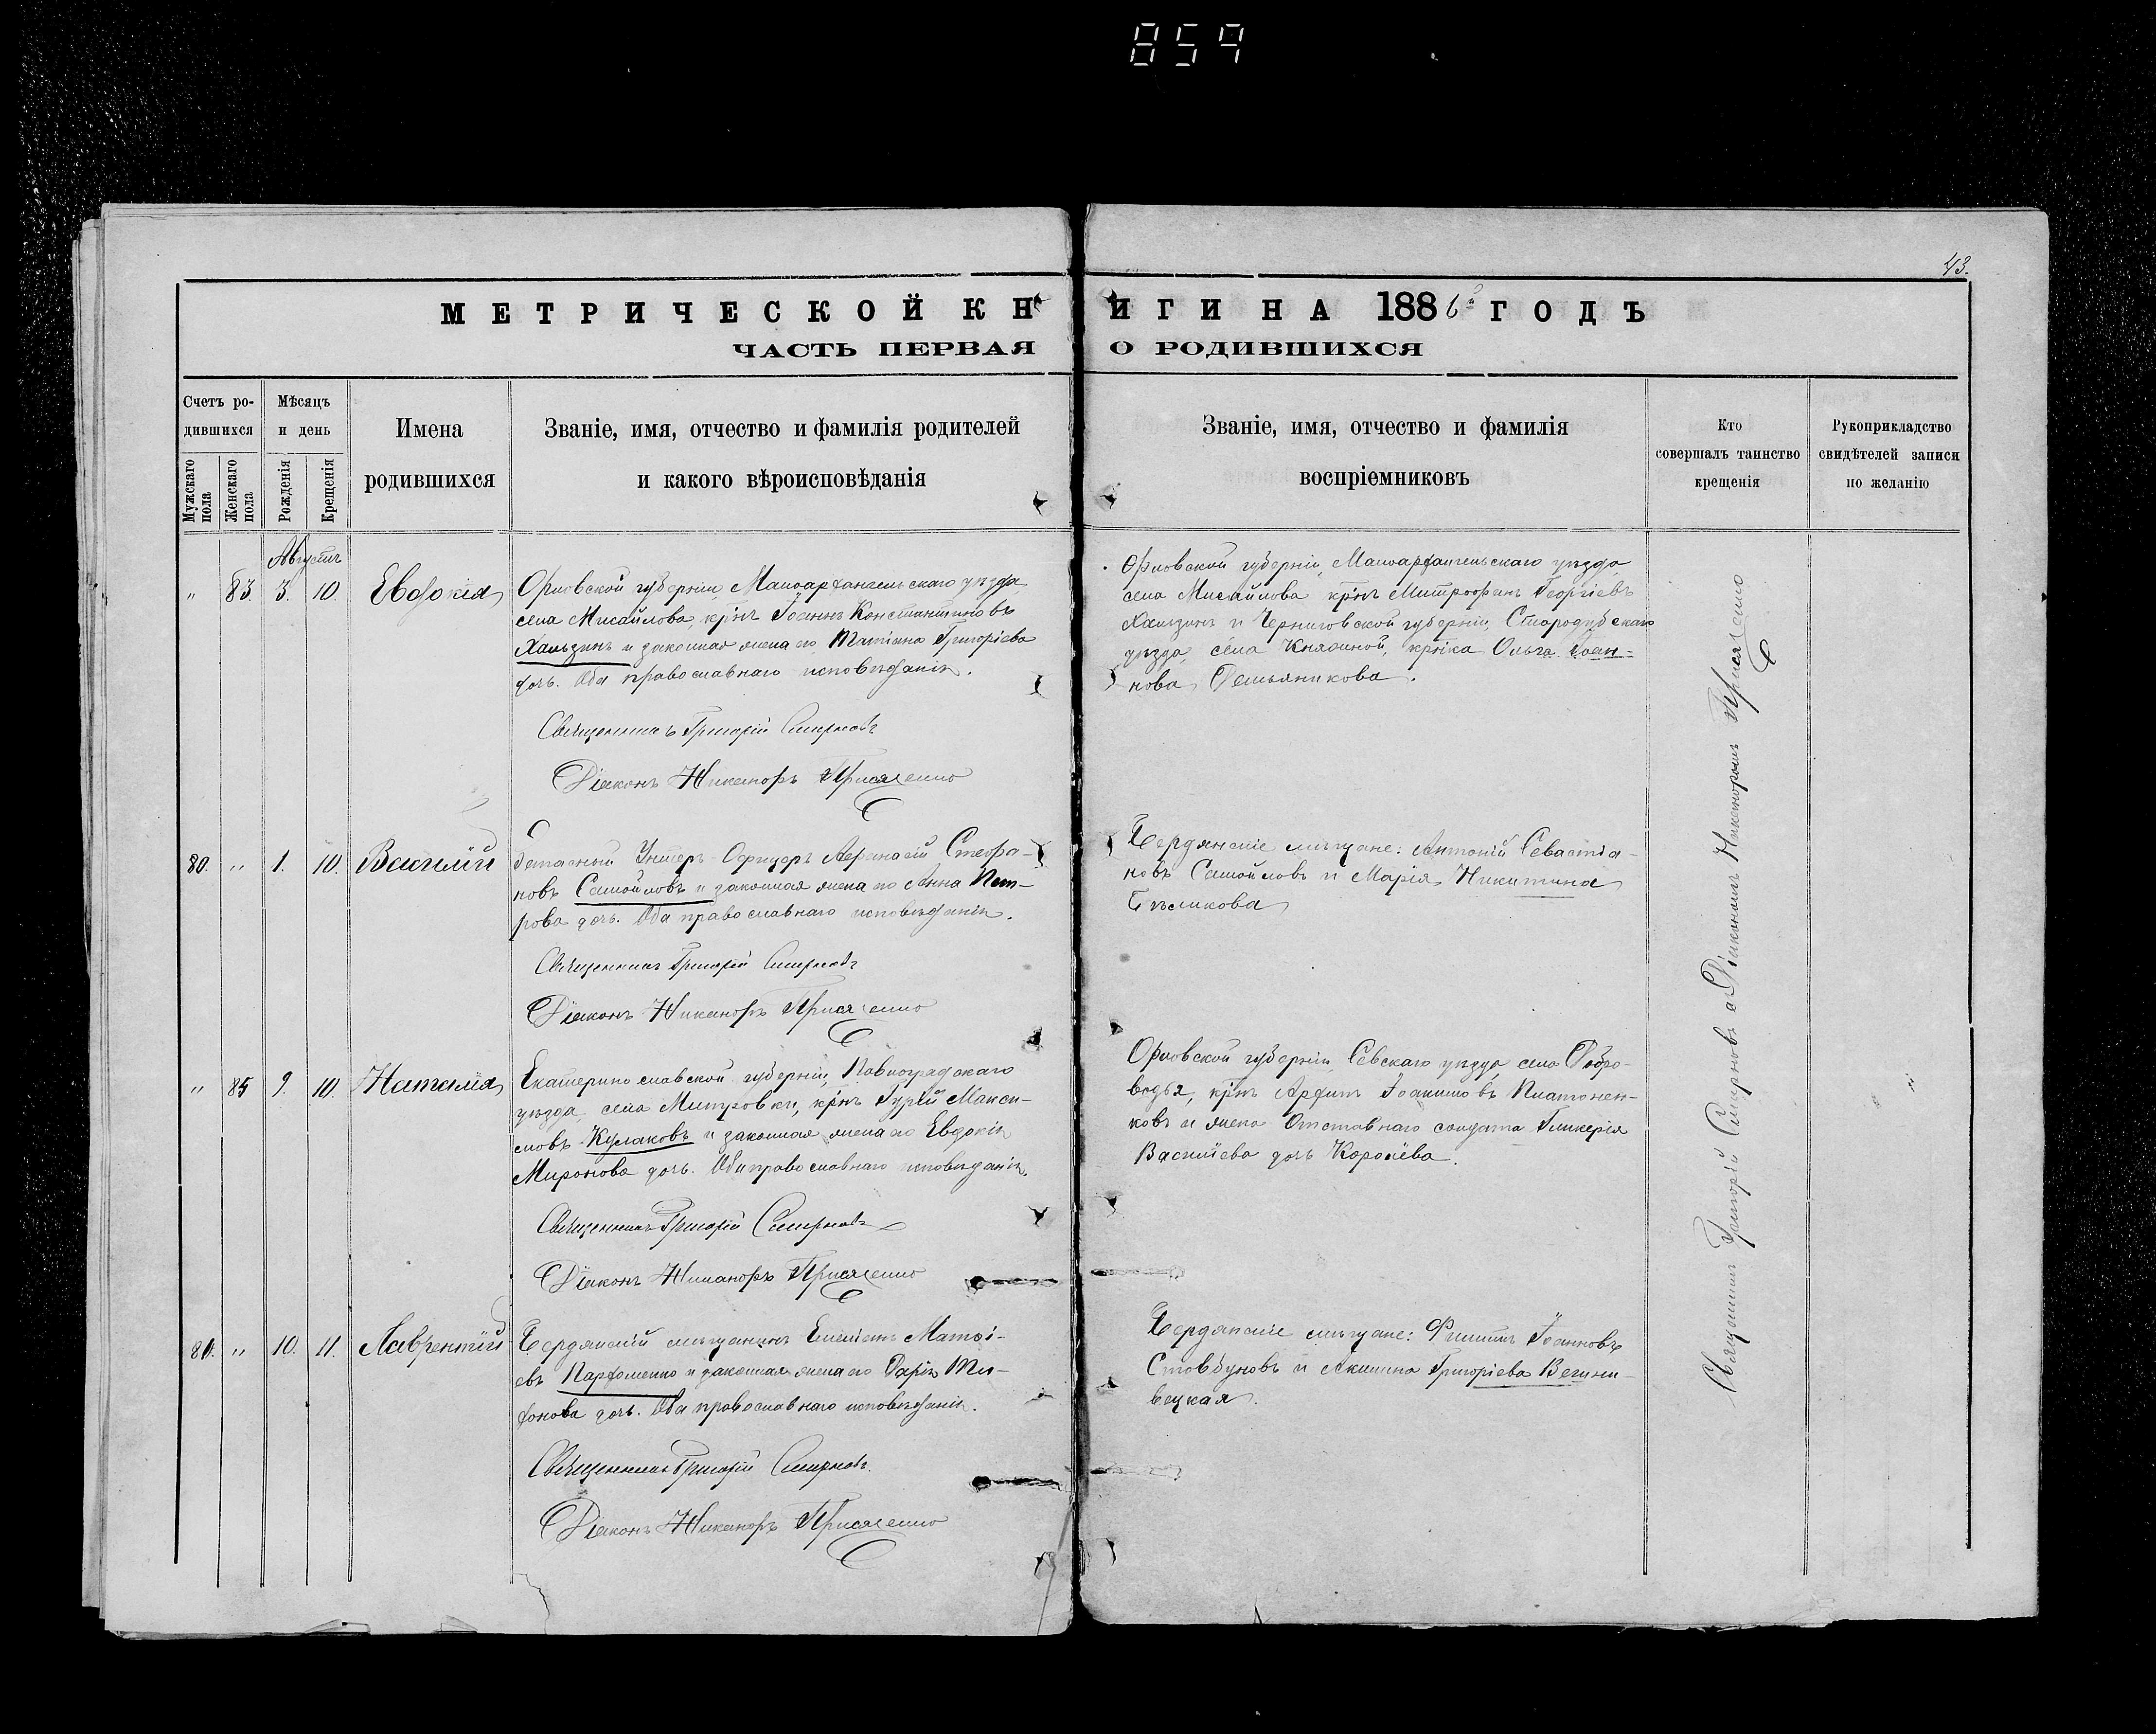 859
43.
МЕТРИЧЕСКОЙ КНИГИ НА 1886й ГОДЪ
ЧАСТЬ ПЕРВАЯ О РОДИВШИХСЯ
Счетъ ро-
дившихся
Мужскаго пола
Женскаго пола
Мѣсяцъ
и день
Рожденія
Крещенія
Имена
родившихся
Званіе, имя, отчество и фамилія родителей
и какого вѣроисповѣданія
Званіе, имя, отчество и фамилія
воспріемниковъ
Кто
совершалъ таинство
крещенія
Рукоприкладство
свидѣтелей записи
по желанію
Августъ
" 83. 3. 10 Евдокія
Орловской губерніи, Малоархангельскаго уѣзда,
села Мисайлова, кр̃нъ Іоаннъ Константиновъ
Хальзинъ и законная жена его Татіана Григоріева
дочь. Оба православнаго исповѣданія.
Священникъ Григорій Смирновъ
Діаконъ Никаноръ Присяженко
Орловской губерніи, Малоархангельскаго уѣзда
села Мисайлова кр̃нъ Митрофанъ Георгіевъ
Хальзинъ и Черниговской губерніи, Стародубскаго
уѣзда, села Княжиной, кр̃нка Ольга Іоан-
нова Демьяникова.
80. " 1. 10. Василій
Запасный Унтеръ-Офицеръ Аѳанасій Стефа-
новъ Самойловъ и законная жена его Анна Пет-
рова дочь. Оба православнаго исповѣданія.
Священникъ Григорій Смирновъ
Діаконъ Никаноръ Присяженко
Бердянскіе мѣщане: Антоній Севастіа-
новъ Самойловъ и Марія Никитина
Бѣликова
" 84 9. 10. Наталія
Екатеринославской губерніи, Павлоградскаго
уѣзда, села Митровки, кр̃нъ Гурій Макси-
мовъ Кулаковъ и законная жена его Евдокія
Миронова дочь. Оба православнаго исповѣданія.
Священникъ Григорій Смирновъ
Діаконъ Никаноръ Присяженко
Орловской губерніи, Севскаго уѣзда, села Добро-
водья, кр̃нъ Архипъ Іоакимовъ Платонен-
ковъ и жена Отставнаго солдата Гликерія
Василіева дочь Королёва.
81. " 10. 11. Лаврентій
Бердянскій мѣщанинъ Емеліанъ Матѳі-
евъ Пархоменко и законная жена его Дарія Ти-
хонова дочь. Оба православнаго исповѣданія.
Священникъ Григорій Смирновъ.
Діаконъ Никаноръ Присяженко
Бердянскіе мѣщане: Филиппъ Іоанновъ
Стовбуновъ и Акилина Григоріева
вецкая.
Священникъ Григорій Смирновъ съ Діакономъ Никаноромъ Присяженко